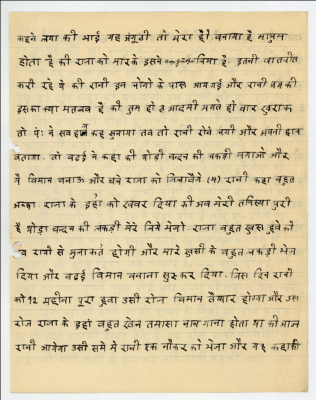 कहने लगा की भाई यह अंगूठी तो मेरा है। बनाया है मालुम
होता है की राजा को मारके इसने लिया है। इतनी बातचीत
करी रहे थे की रानी इन लोगो के पास आय गई और रानी बोली
इसका क्या मतलब है की तुम हो ७ आदमी मगते हो चार खुराक
तो ये ने सब हाल कह सुनाया तब तो रानी रोने लगी और अपनी हाल
बताया। तो बढई ने कहा की थोडी चन्दन की लकडी मगाओ और
मै विमान बनाऊ और चले राजा को जिलावैगे (५) रानी कहा बहुत
अच्छा। राजा के इहाँ को खबर दिया की अब मेरी तपिस्या पुरी
है थोडा चन्दन की लकडी मेरे लिये भेजो। राजा बहुत खुस हुवे की
अब रानी से मुलाकात होगी और मारे खुसी के बहुत लकडी भेज
दिया और बढई विमान बनाना सुरू कर दिया। जिस दिन रानी
को १२ महीना पुरा हुवा उसी रोज विमान तैय्यार होगा और उस
रोज राजा के इहाँ बहुत खेल तमासा नाच गाना होता था की आज
रानी आयेगा उसी समे मे रानी एक नौकर को भेजा और यह कहा की